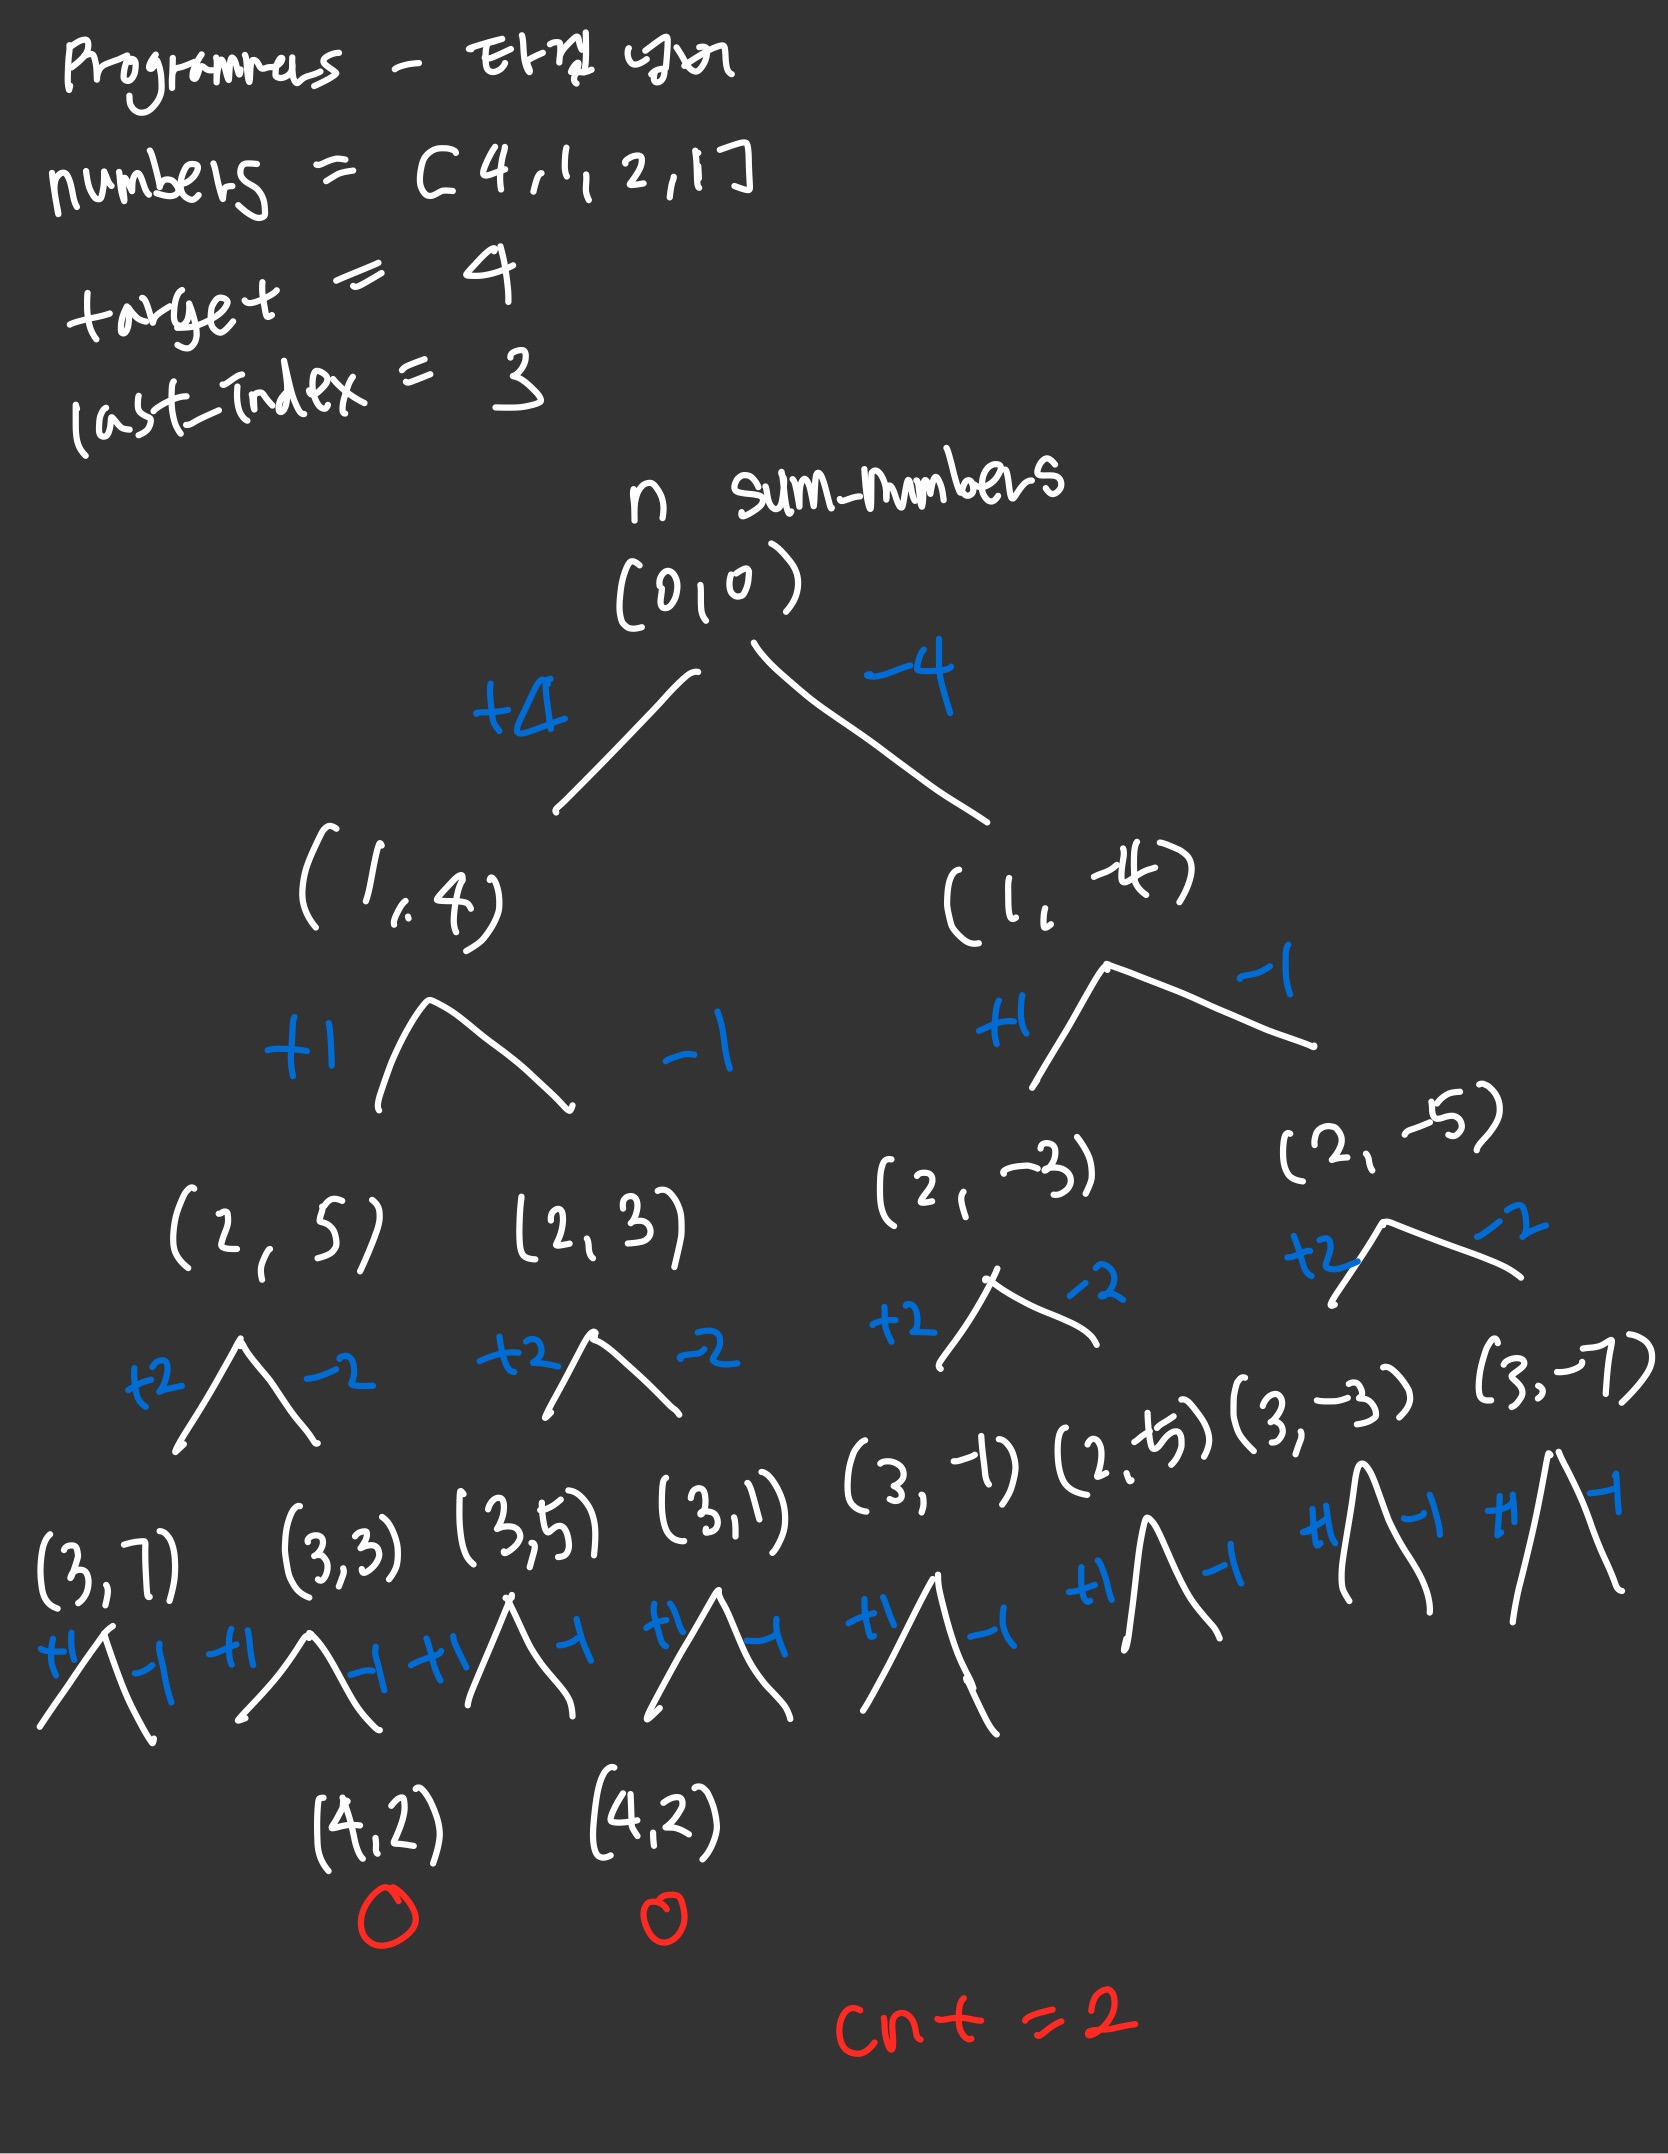 Programmers - 타겟 넘버
numbers = [4,1,2,1]
target = 4
last_index = 3
n sum_numbers
(0,0)
+4 -4
(1,4) (1,-4)
+1 -1 +1 -1
(2,5) (2,3) (2,-3) (2,-5)
+2 -2 +2 -2 +2 -2 +2 -2
(3,7) (3,3) (3,5) (3,1) (3,-1) (2,-5) (3,-3) (3,-7)
+1 -1 +1 -1 +1 -1 +1 -1 +1 -1 +1 -1 +1 -1 +1 -1
(4,2) (4,2)
O O
cnt = 2